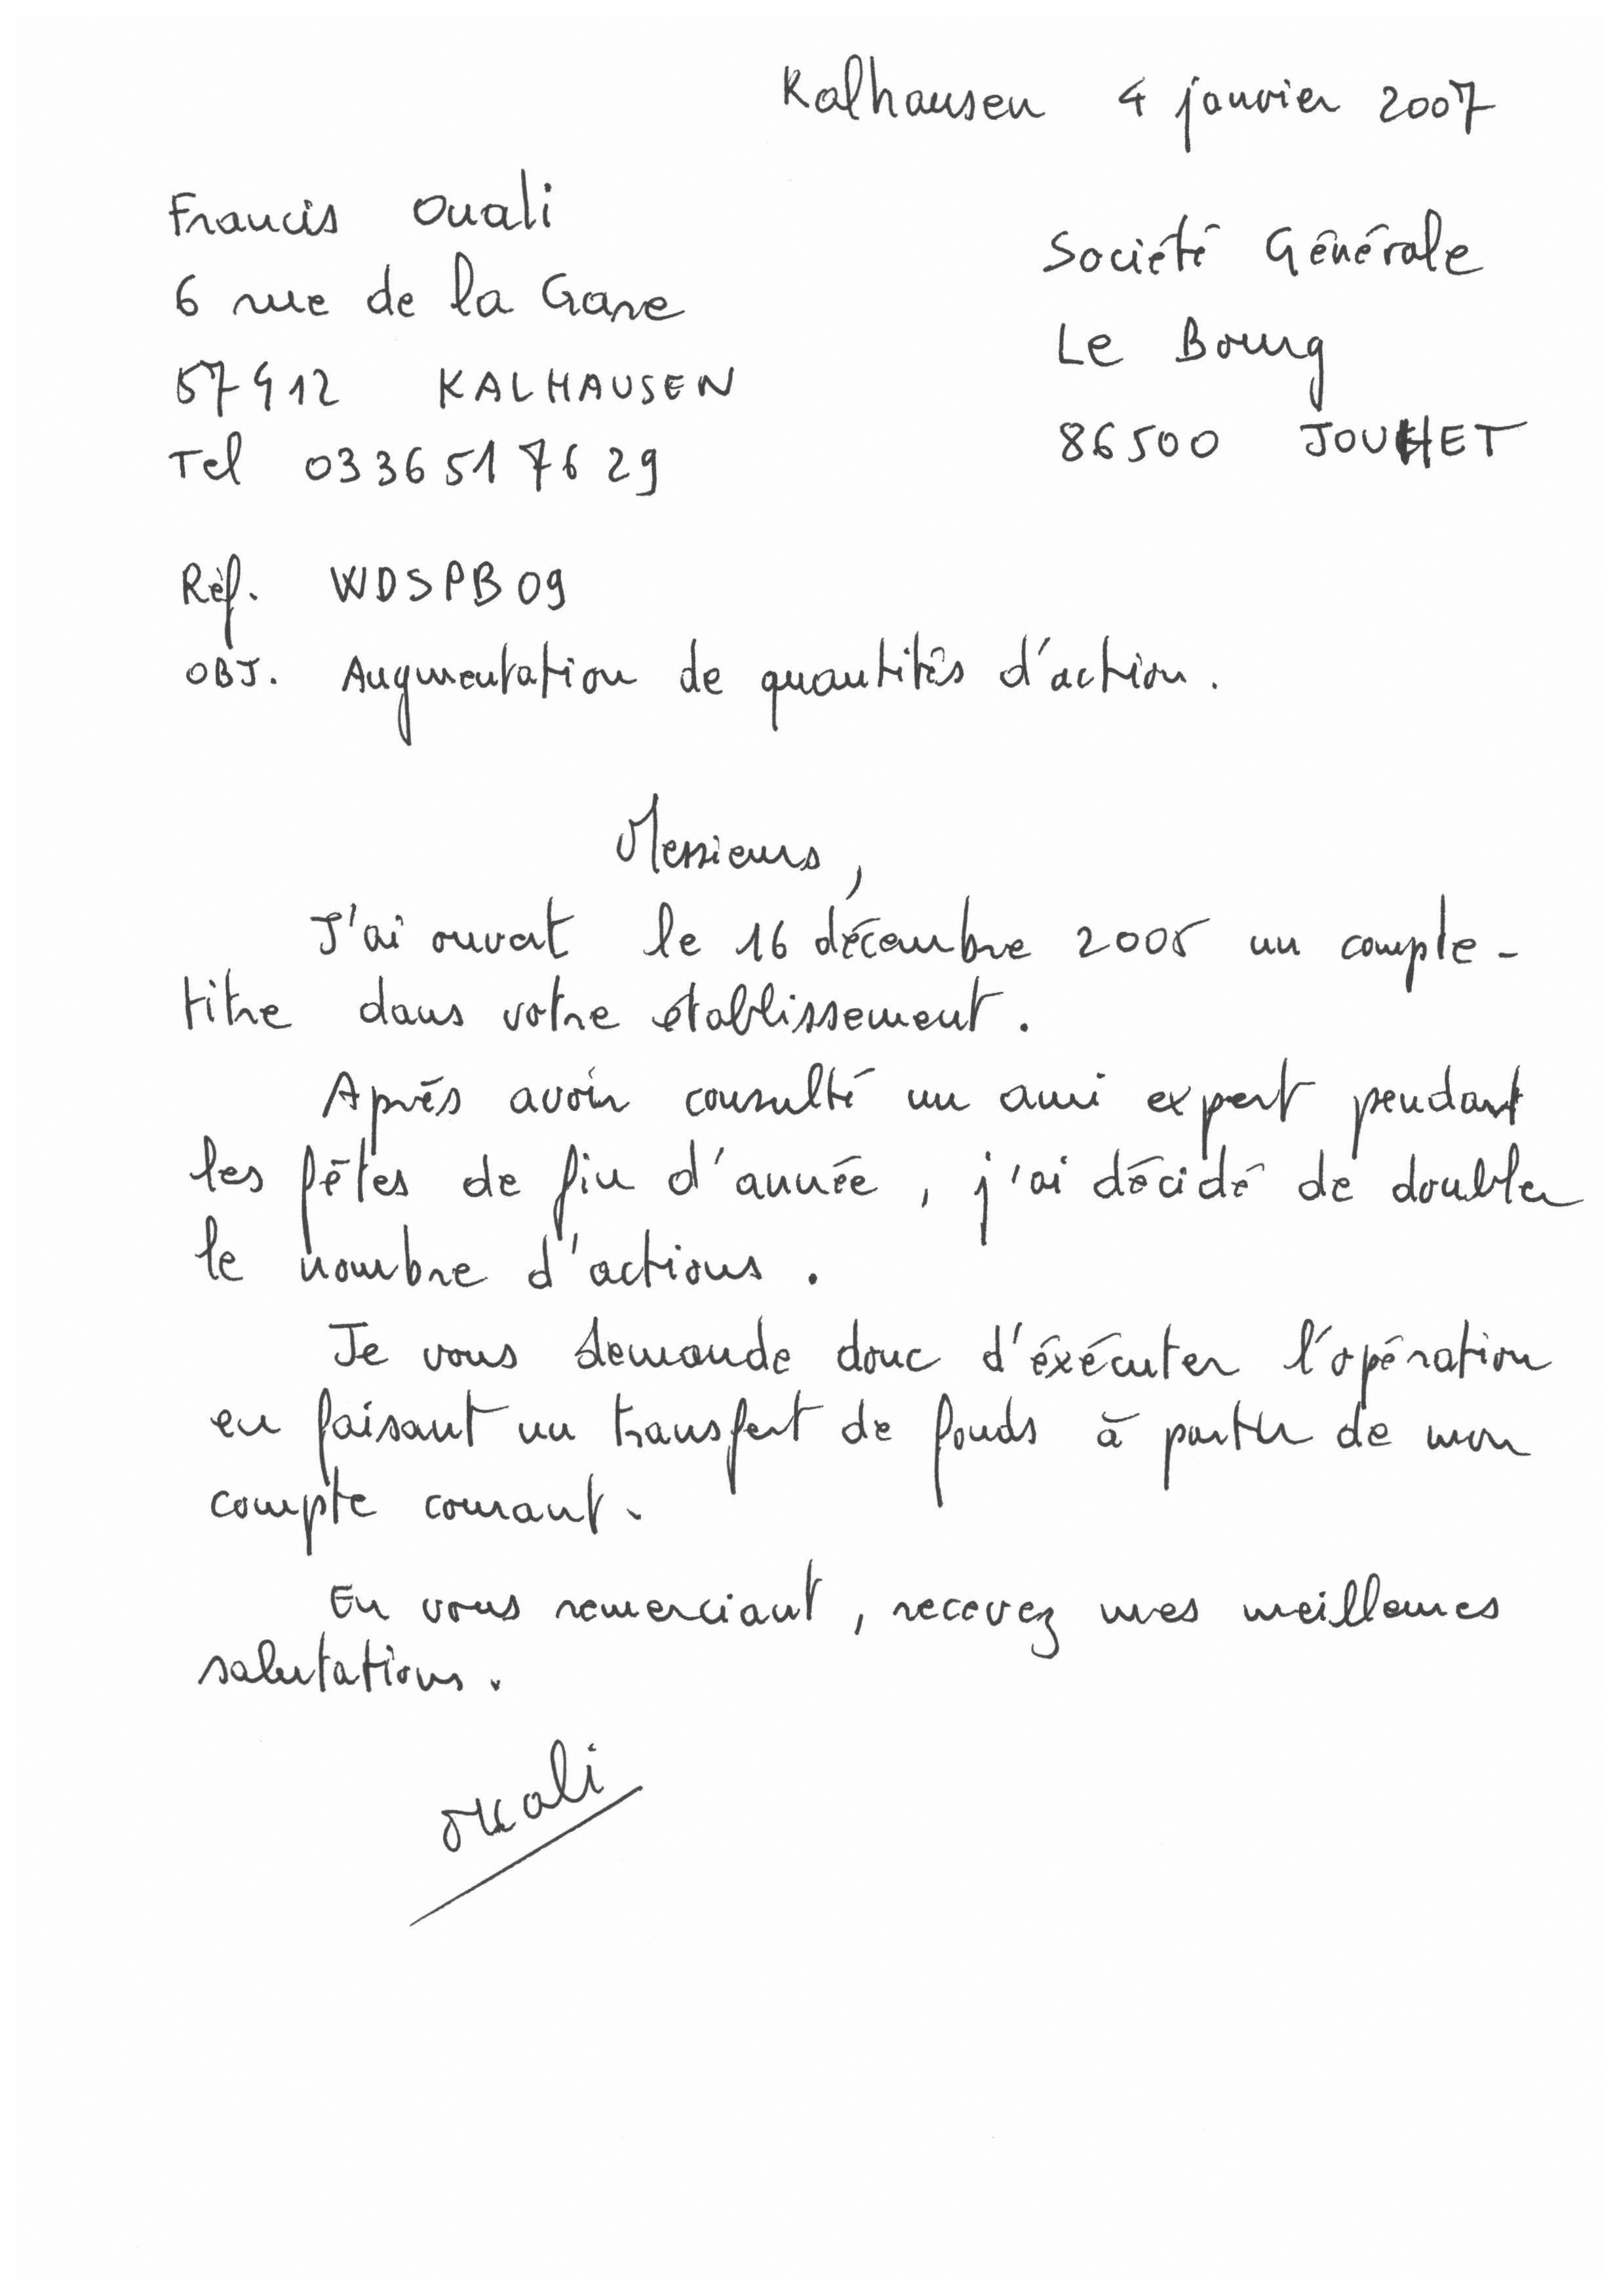 Kalhausen 4 janvier 2007
Francis Ouali
6 rue de la Gare
57412 KALHAUSEN
Tel 03 36 51 76 29
Société Générale
Le Bourg
86500 JOUHET
Réf. WDSPB09
OBJ. Augmentation de quantités d'action.
Messieurs,
J'ai ouvert le 16 décembre 2005 un compte-
titre dans votre établissement.
Après avoir consulté un ami expert pendant
les fêtes de fin d'année, j'ai décidé de doubler
le nombre d'actions.
Je vous demande donc d'éxécuter l'opération
en faisant un transfert de fonds à partir de mon
compte courant.
En vous remerciant, recevez mes meilleures
salutations.
Ouali